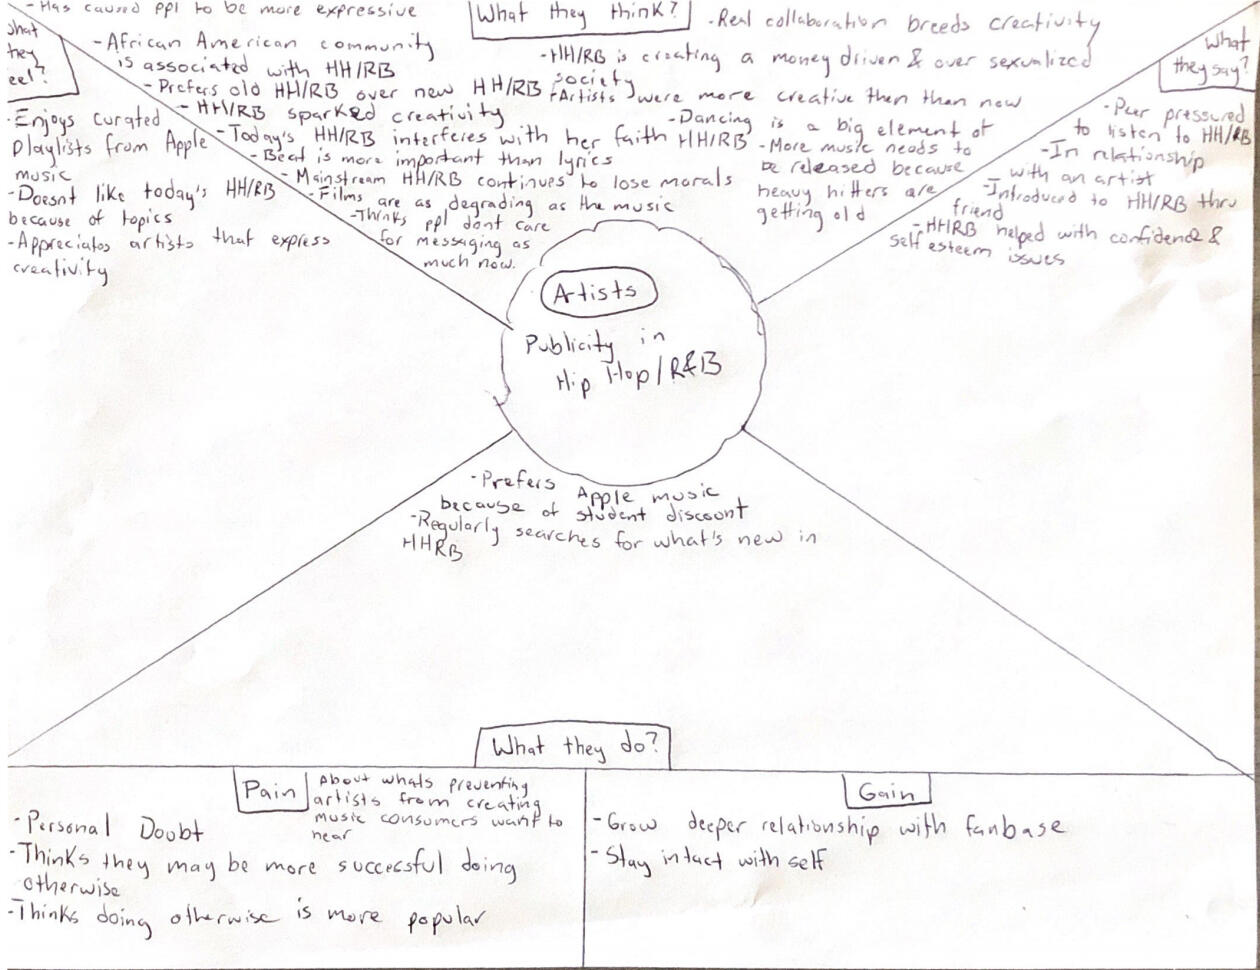 - Has caused ppl to be more expressive
What they think?
- Real collaboration breeds creativity
- African American community
is associated with HH/RB
- HH/RB is creating a money driven & over sexualized
society
- Prefers old HH/RB over new HH/RB
- Artists were more creative then than now
- HH/RB sparked creativity
- Dancing is a big element of
HH/RB
- Today's HH/RB interferes with her faith
- More music needs to
be released because
heavy hitters are
getting old
- Beat is more important than lyrics
- Mainstream HH/RB continues to lose morals
- Films are as degrading as the music
- Thinks ppl dont care
for messaging as
much now.
what
they
eel?
- Enjoys curated
playlists from Apple
music
- Doesnt like today's HH/RB
because of topics
- Appreciates artists that express
creativity
What
they say?
- Peer pressured
to listen to HH/RB
- In relationship
with an artist
- Introduced to HH/RB thru
friend
- HHRB helped with confidence &
self esteem issues
Artists
Publicity in
Hip Hop/R&B
- Prefers Apple music
because of student discount
- Regularly searches for what's new in
HHRB
What they do?
Pain
About whats preventing
artists from creating
music consumers want to
hear
- Personal Doubt
- Thinks they may be more successful doing
otherwise
- Thinks doing otherwise is more popular
Gain
- Grow deeper relationship with fanbase
- Stay intact with self